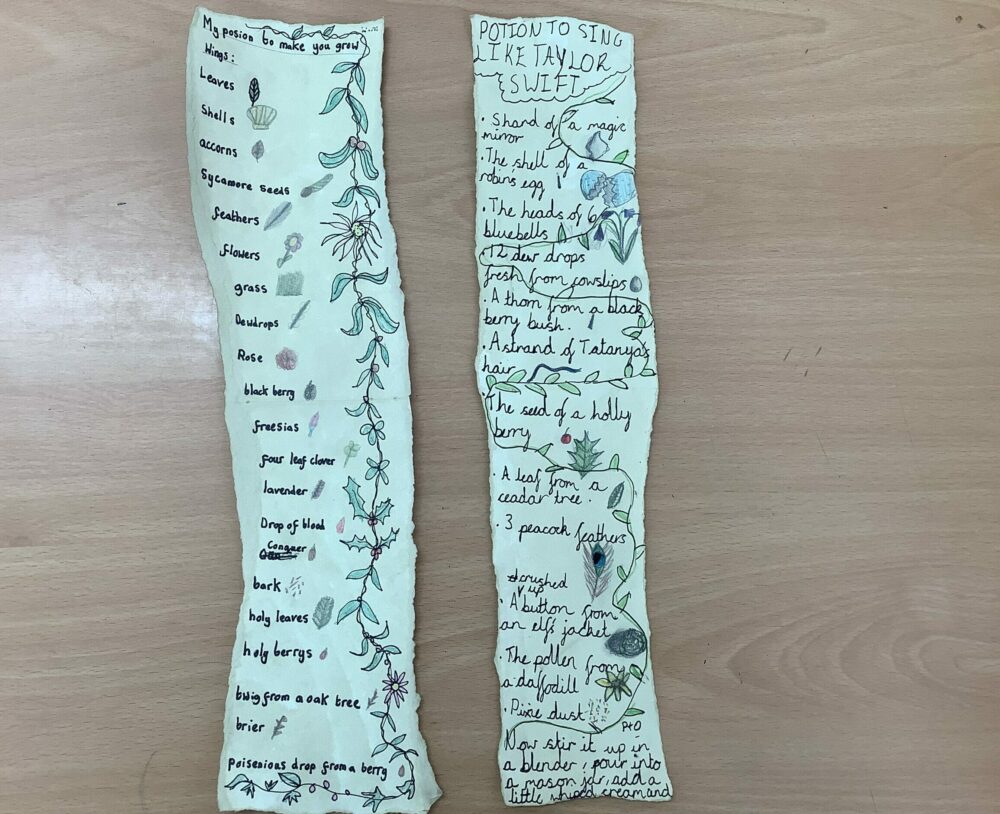 My posion to make you grow
Wings:
Leaves
Shells
accorns
Sycamore seeds
feathers
flowers
grass
Dewdrops
Rose
black berry
freesias
four leaf clover
lavender
Drop of blood
Conquer
bark
holy leaves
holy berrys
twig from a oak tree
brier
poisenious drop from a berry
POTION TO SING
LIKE TAYLOR
SWIFT
• Shard of a magic
mirror
• The shell of a
robin's egg
• The heads of 6
bluebells
• 12 dew drops
fresh from cowslips
• A thorn from a black
berry bush.
• A strand of Tatanya's
hair
• The seed of a holly
berry
• A leaf from a
ceadar tree.
• 3 peacock feathers
crushed
up
• A button from
an elfs jacket
• The pollen from
a daffodill
• Pixie dust
PTO
Now stir it up in
a blender, pour into
a mason jar, add a
little whiped cream and